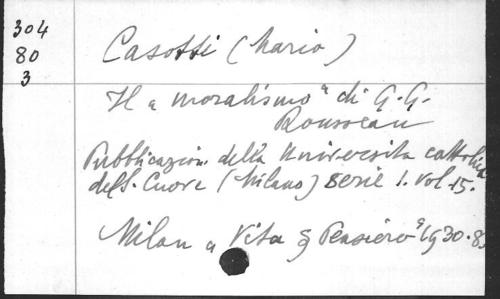 304
80
3
Casotti (Mario)
Il "moralismo" di G. G.
Rousseau
Pubblicazioni della Universita cattolica
del S. Cuore (Milano) Serie I. vol. 15.
Milan "Vita & Pensiero" 1930. 8.